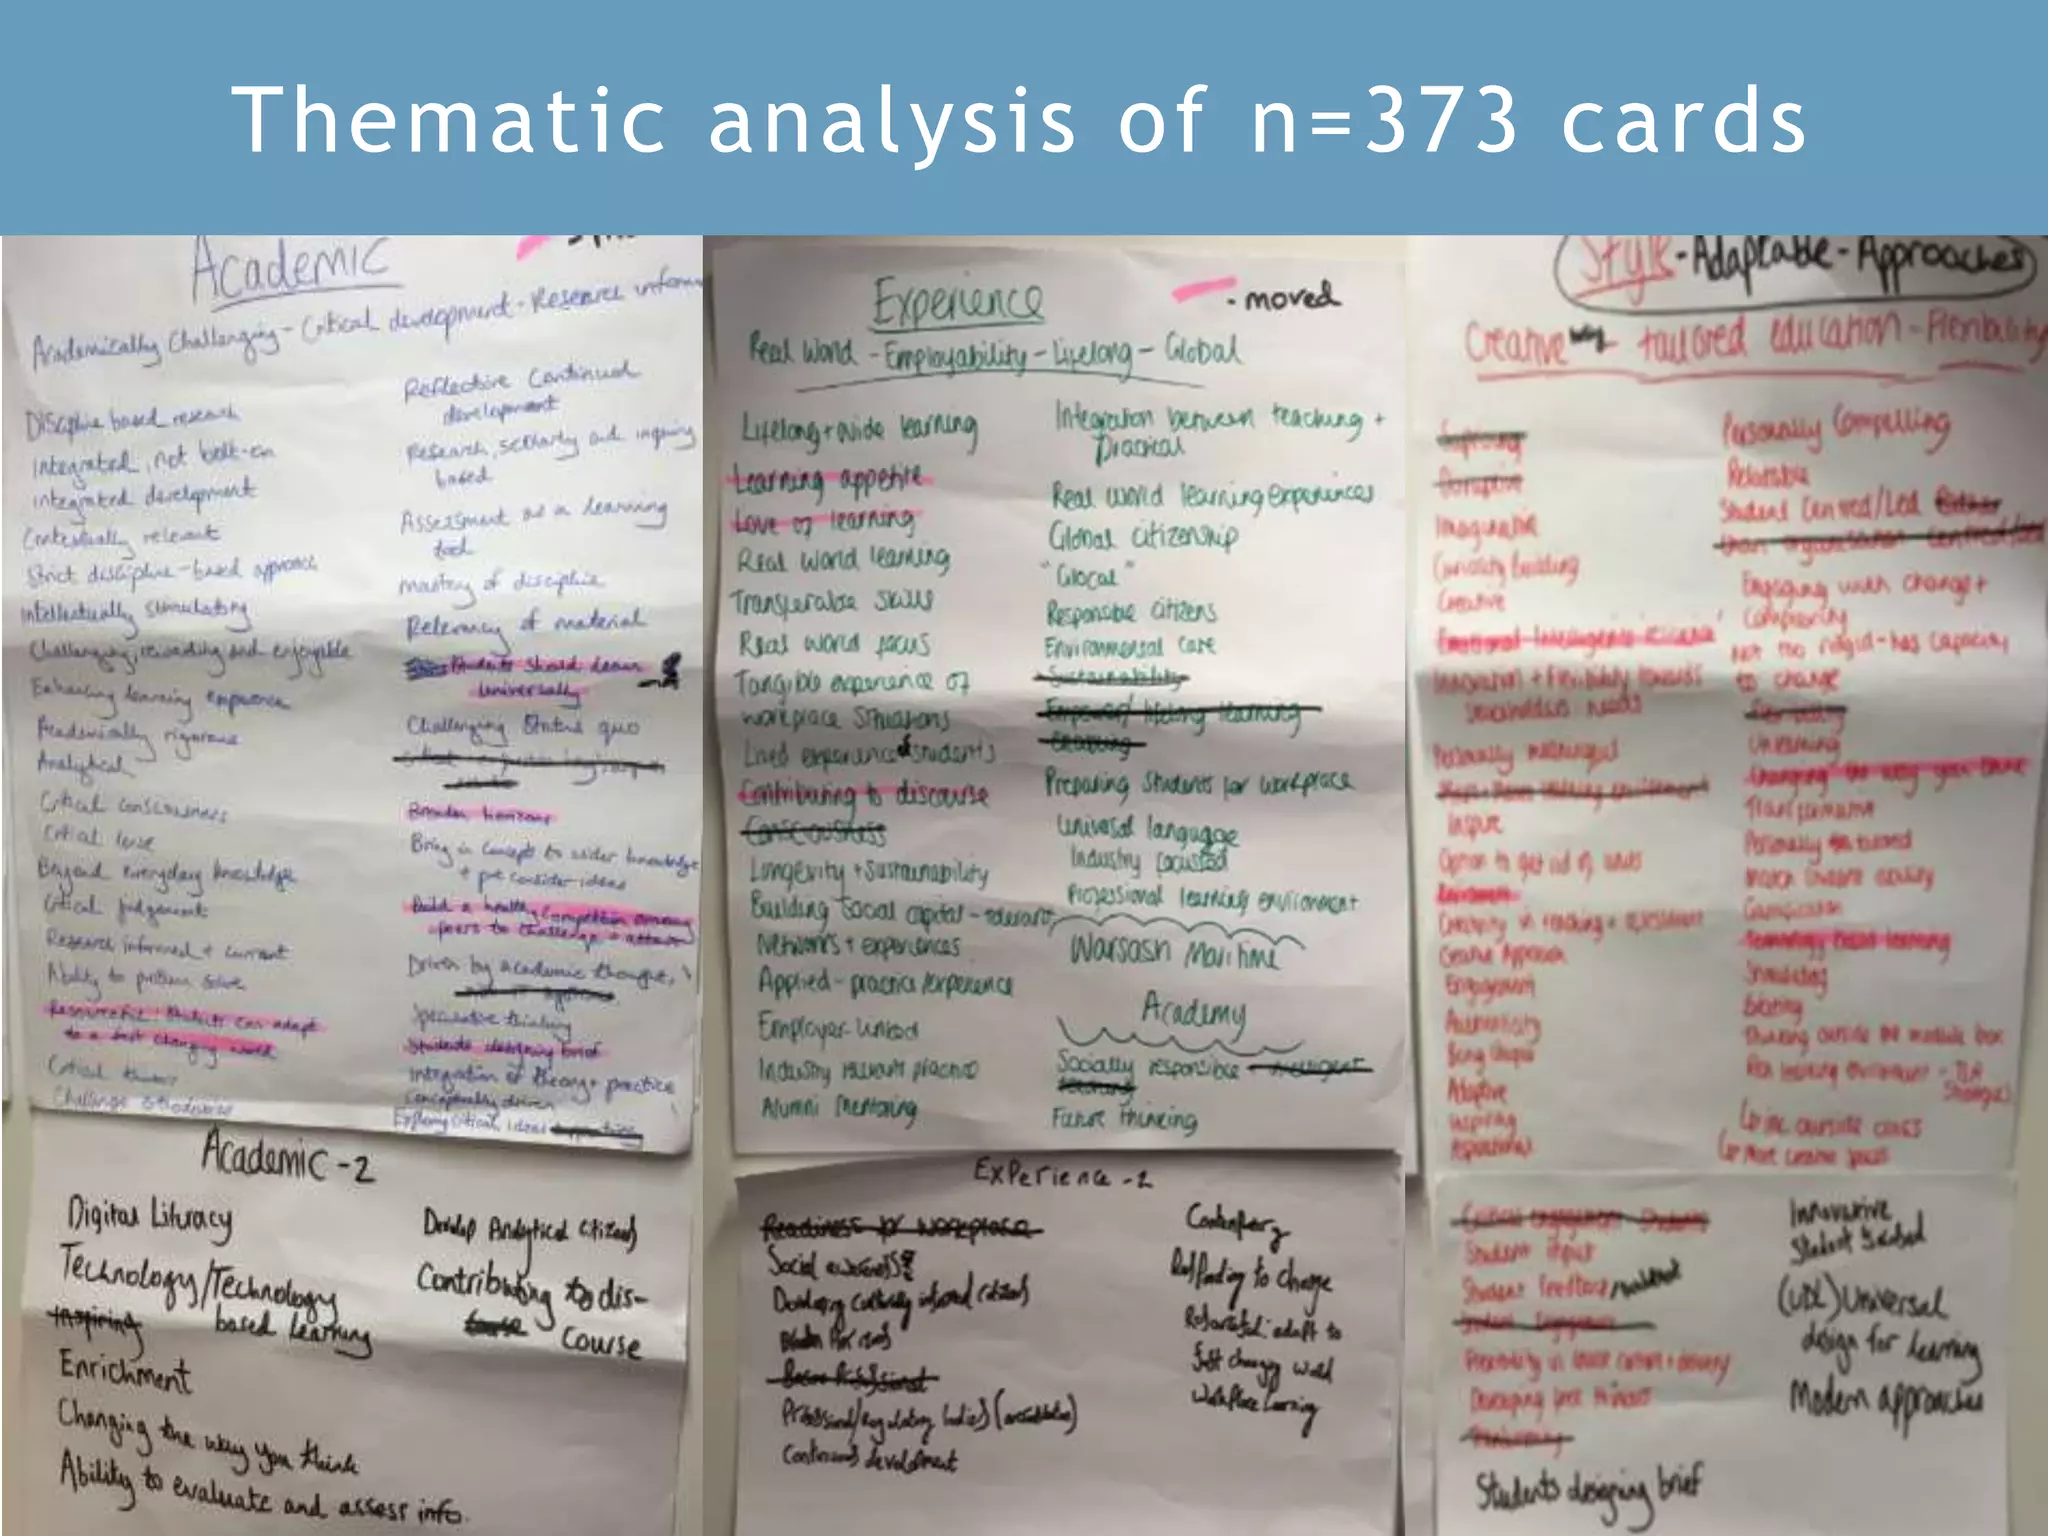 Thematic analysis of n=373 cards
Academic
Academically Challenging - Critical development - Research inform
Discipline based research
Integrated, not bolt-on
integrated development
Contextually relevant
Strict discipline-based approach
Intellectually stimulating
Challenging, rewarding and enjoyable
Enhancing learning experience
Academically rigorous
Analytical
Critical consciousness
Critical lense
Beyond everyday knowledge
Critical judgement
Research informed + current
Ability to problem solve
Resourceful: Students can adapt
to a fast changing world
Critical thinker
Challenge orthodoxies
Reflective Continued
development
Research, scholarly and inquiry
based
Assessment as a learning
tool
mastery of discipline
Relevancy of material
Students should learn
universally
Challenging Status quo
Broaden horizons
Bring in concepts to wider knowledge
+ pre consider ideas
Build a healthy competition among
peers to challenge + attain
Driven by academic thought,
Speculative thinking
Students designing brief
Integration of theory + practice
Conceptually driven
Exploring critical ideas
Academic-2
Digital Literacy
Technology/Technology
based learning
Inspiring
Enrichment
Changing the way you think
Ability to evaluate and assess info.
Develop Analytical citizens
Contributing to dis-
course
Experience
- moved
Real World - Employability - Lifelong - Global
Lifelong + wide learning
Learning appetite
Love of learning
Real World learning
Transferable skills
Real world focus
Tangible experience of
workplace situations
Lived experience of students
Contributing to discourse
Consciousness
Longevity + Sustainability
Building social capital - relevant
Networks + experiences
Applied - practice/experience
Employer-linked
Industry relevant practice
Alumni Mentoring
Integration between teaching +
Practical
Real world learning experiences
Global citizenship
"Glocal"
Responsible citizens
Environmental care
Sustainability
Empower/ lifelong learning
Preparing Students for workplace
Universal language
Industry focussed
Professional learning environment
Warsash Maritime
Academy
Socially responsible
Future thinking
Experience -2
Readiness for workplace
Social awareness
Developing culturally informed citizens
Professional/regulatory bodies (accreditation)
Continuous development
Contemporary
Responding to change
Resourceful: adapt to
fast changing world
Workplace learning
Style - Adaptable - Approaches
Creative - tailored education - Flexibility
Exploring
Disruptive
Imaginative
Curiosity building
Creative
Innovation + Flexibility towards
stakeholders needs
Personally meaningful
Inspire
Option to get rid of units
Creativity in teaching + assessment
Creative Approach
Engagement
Authenticity
Being Unique
Adaptive
Inspiring
Aspirational
Personally Compelling
Relatable
Student Centred/Led
Engaging with change +
Complexity
Not too rigid - has capacity
to change
Unlearning
Changing the way you think
Transformative
Gamification
Technology based learning
Stimulating
Exciting
Thinking outside the module box
Student input
Student feedback
Flexibility in
Students designing brief
Innovative
Student focused
(UDL) Universal
design for learning
Modern approaches